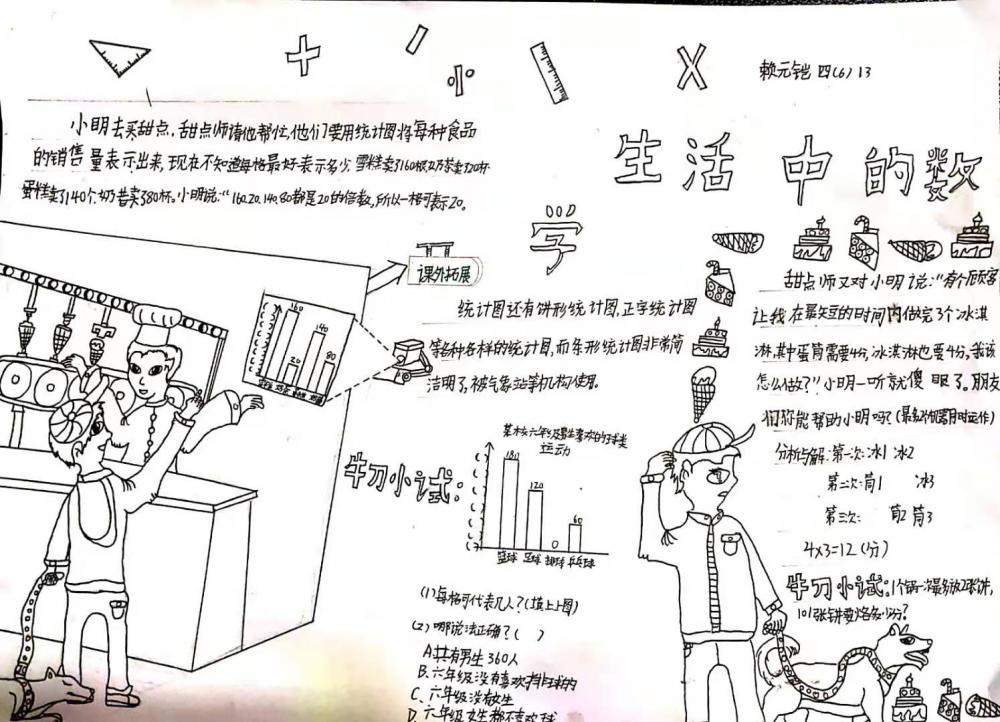 赖元铠 四(6) 13
生活中的数
学
小明去买甜点，甜点师请他帮忙，他们要用统计图将每种食品
的销售量表示出来，现在不知道每格最好表示多少，雪糕卖了160根奶茶卖了20杯
蛋糕卖了140个，奶昔卖了80杯。小明说："160.20.140.80都是20的倍数，所以一格可表示20。
160
20
140
80
课外拓展
统计图还有饼形统计图，正字统计图
等各种各样的统计图，而条形统计图非常简
洁明了，被气象站等机构使用。
牛刀小试：
某校六年级男生喜欢的球类
运动
180
120
0
60
篮球 足球 排球 乒乓球
(1)每格可代表几人？(填上上图)
(2)哪说法正确？( )
A.共有男生360人
B.六年级没有喜欢排球的
C.六年级没女生
D.六年级女生都不喜欢球
甜点师又对小明说："有个顾客
让我在最短的时间内做完3个冰淇
淋，其中蛋筒需要4分，冰淇淋也要4分，我该
怎么做？"小明一听就傻眼了。朋友
们你能帮助小明吗？
分析与解：第一次：冰1 冰2
第二次：筒1 冰3
第三次： 筒2 筒3
4×3=12(分)
牛刀小试：1个锅一次最多放2张饼，
101张饼要烙多少分？